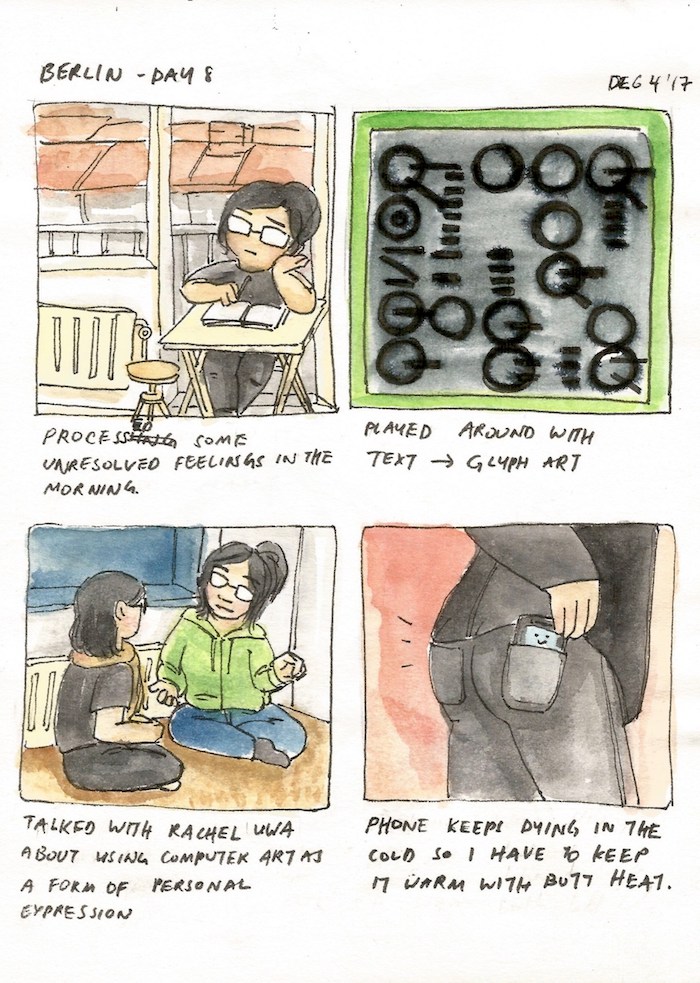 BERLIN - DAY 8
DEC 4 '17
PROCESSED SOME
UNRESOLVED FEELINGS IN THE
MORNING.
PLAYED AROUND WITH
TEXT → GLYPH ART
TALKED WITH RACHEL UWA
ABOUT USING COMPUTER ART AS
A FORM OF PERSONAL
EXPRESSION
PHONE KEEPS DYING IN THE
COLD SO I HAVE TO KEEP
IT WARM WITH BUTT HEAT.